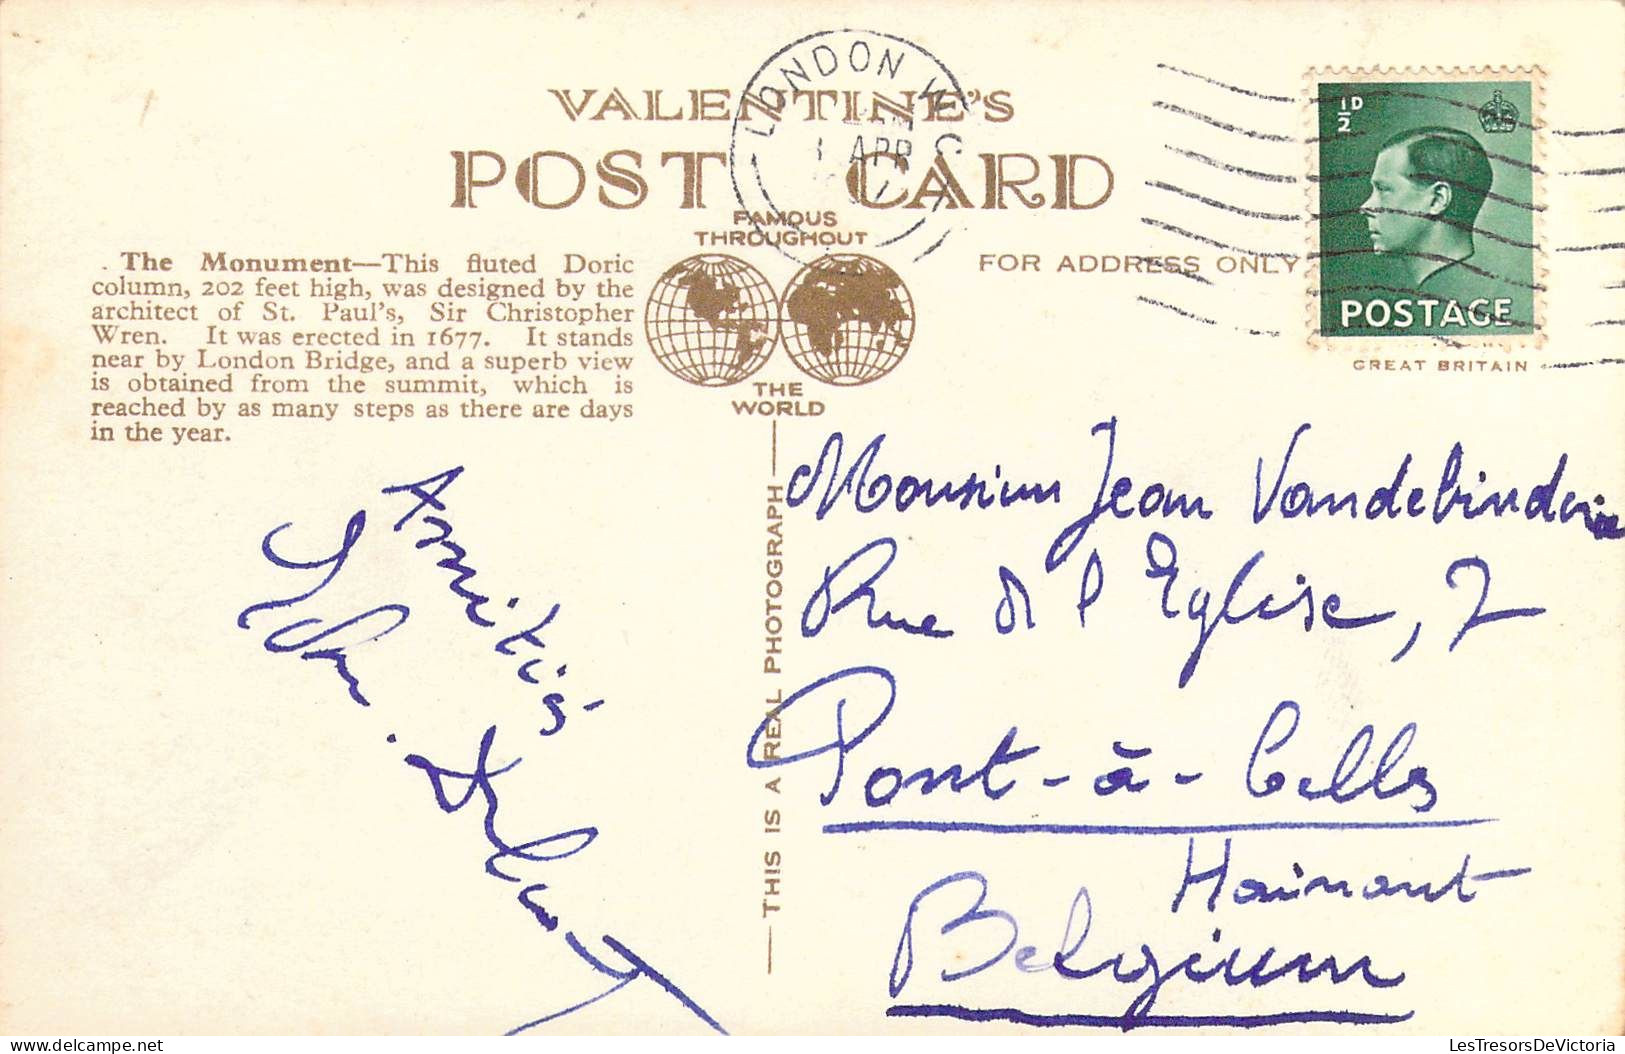 VALENTINE'S
POST CARD
FAMOUS
THROUGHOUT
THE
WORLD
FOR ADDRESS ONLY
LONDON W.C.
1 APR
1/2 D
POSTAGE
GREAT BRITAIN
The Monument—This fluted Doric
column, 202 feet high, was designed by the
architect of St. Paul's, Sir Christopher
Wren. It was erected in 1677. It stands
near by London Bridge, and a superb view
is obtained from the summit, which is
reached by as many steps as there are days
in the year.
THIS IS A REAL PHOTOGRAPH
Amitiés
Monsieur Jean Vandebinderie
Rue de l'Eglise, 7
Pont-à-Celles
Hainaut
Belgium
LesTresorsDeVictoria